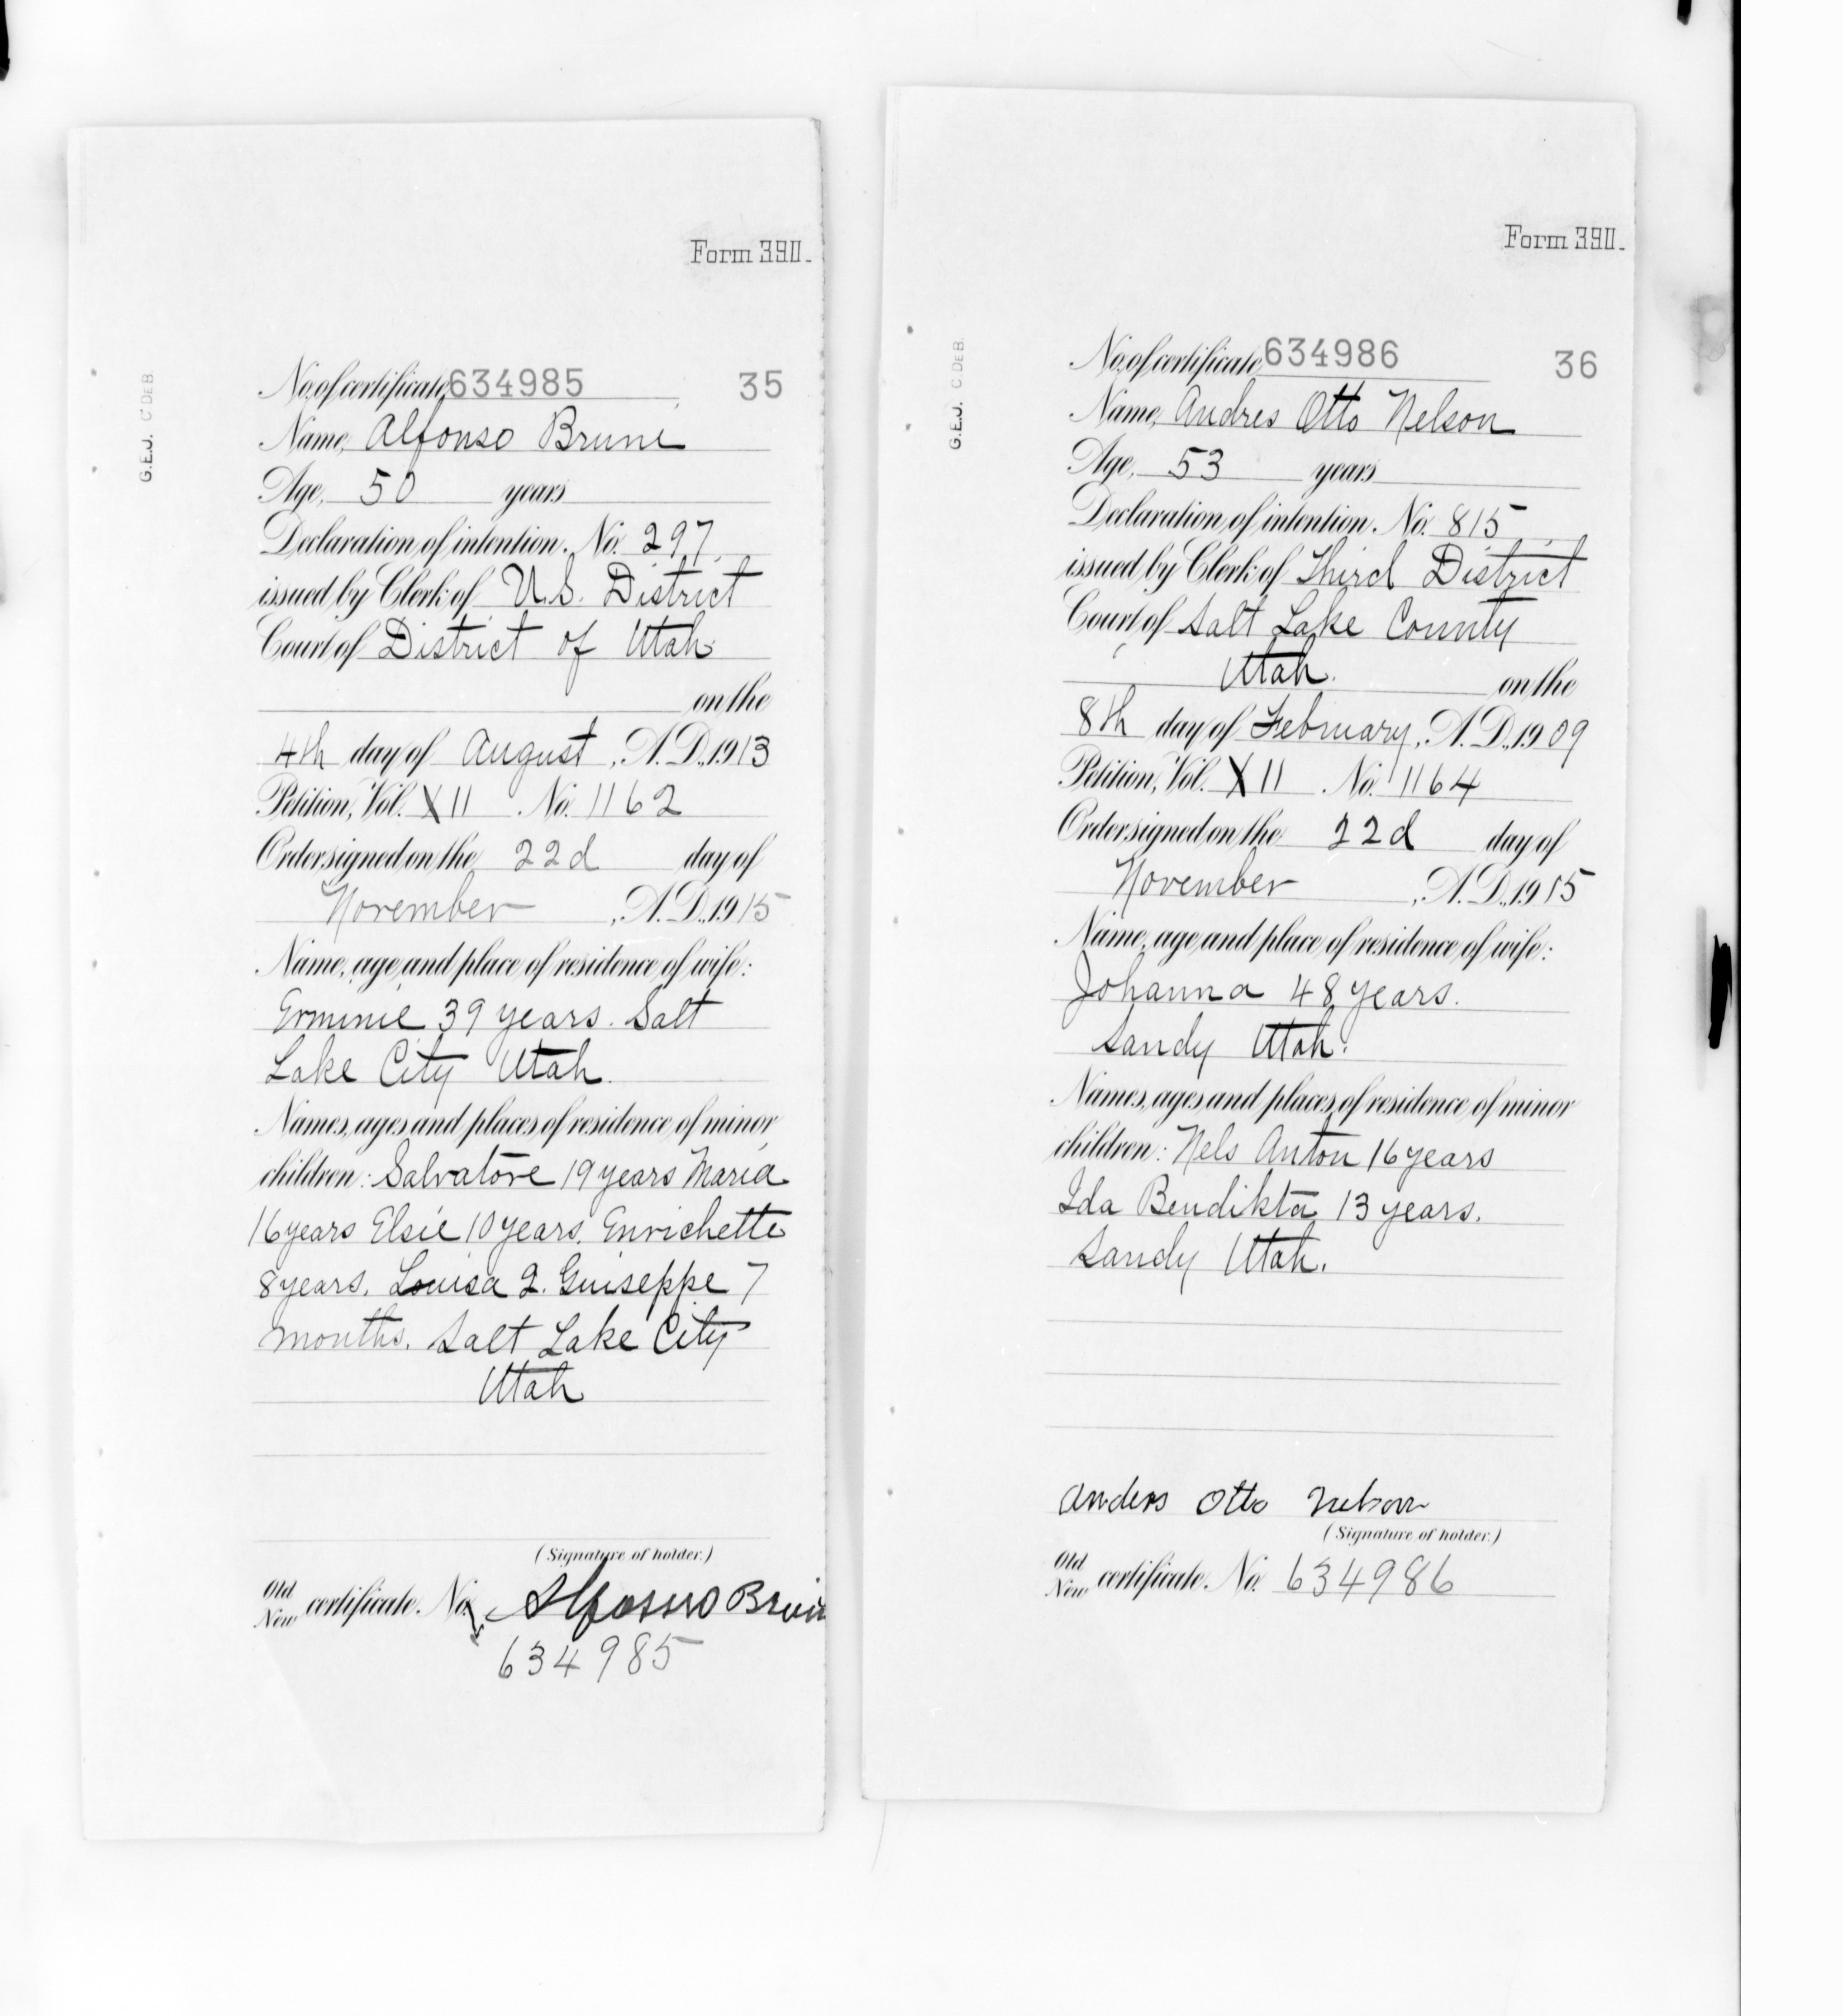 Form 390.
G.E.J. C DE B.
No. of certificate, 634985 35
Name, Alfonso Brune
Age, 50 years
Declaration of intention. No. 297,
issued by Clerk of U.S. District
Court of District of Utah
on the
4th day of August, A.D., 1913
Petition, Vol. XII No. 1162
Order signed on the 22d day of
November, A.D., 1915
Name, age, and place of residence of wife:
Erminie 39 years. Salt
Lake City Utah.
Names, ages and places of residence of minor
children: Salvatore 19 years Maria
16 years Elsie 10 years. Enrichette
8 years. Louisa 2. Guiseppe 7
months. Salt Lake City
Utah
(Signature of holder.)
Old
New certificate. No. Alfonso
634985
Form 390.
G.E.J. C DE B.
No. of certificate, 634986 36
Name, Andres Otto Nelson
Age, 53 years
Declaration of intention. No. 815,
issued by Clerk of Third District
Court of Salt Lake County
Utah. on the
8th day of February, A.D., 1909
Petition, Vol. XII No. 1164
Order signed on the 22d day of
November, A.D., 1915
Name, age, and place of residence of wife:
Johanna 48 years.
Sandy Utah.
Names, ages and places of residence of minor
children: Nels Anton 16 years
Ida Bendikta 13 years.
Sandy Utah.
Anders Otto Nelson
(Signature of holder.)
Old
New certificate. No. 634986